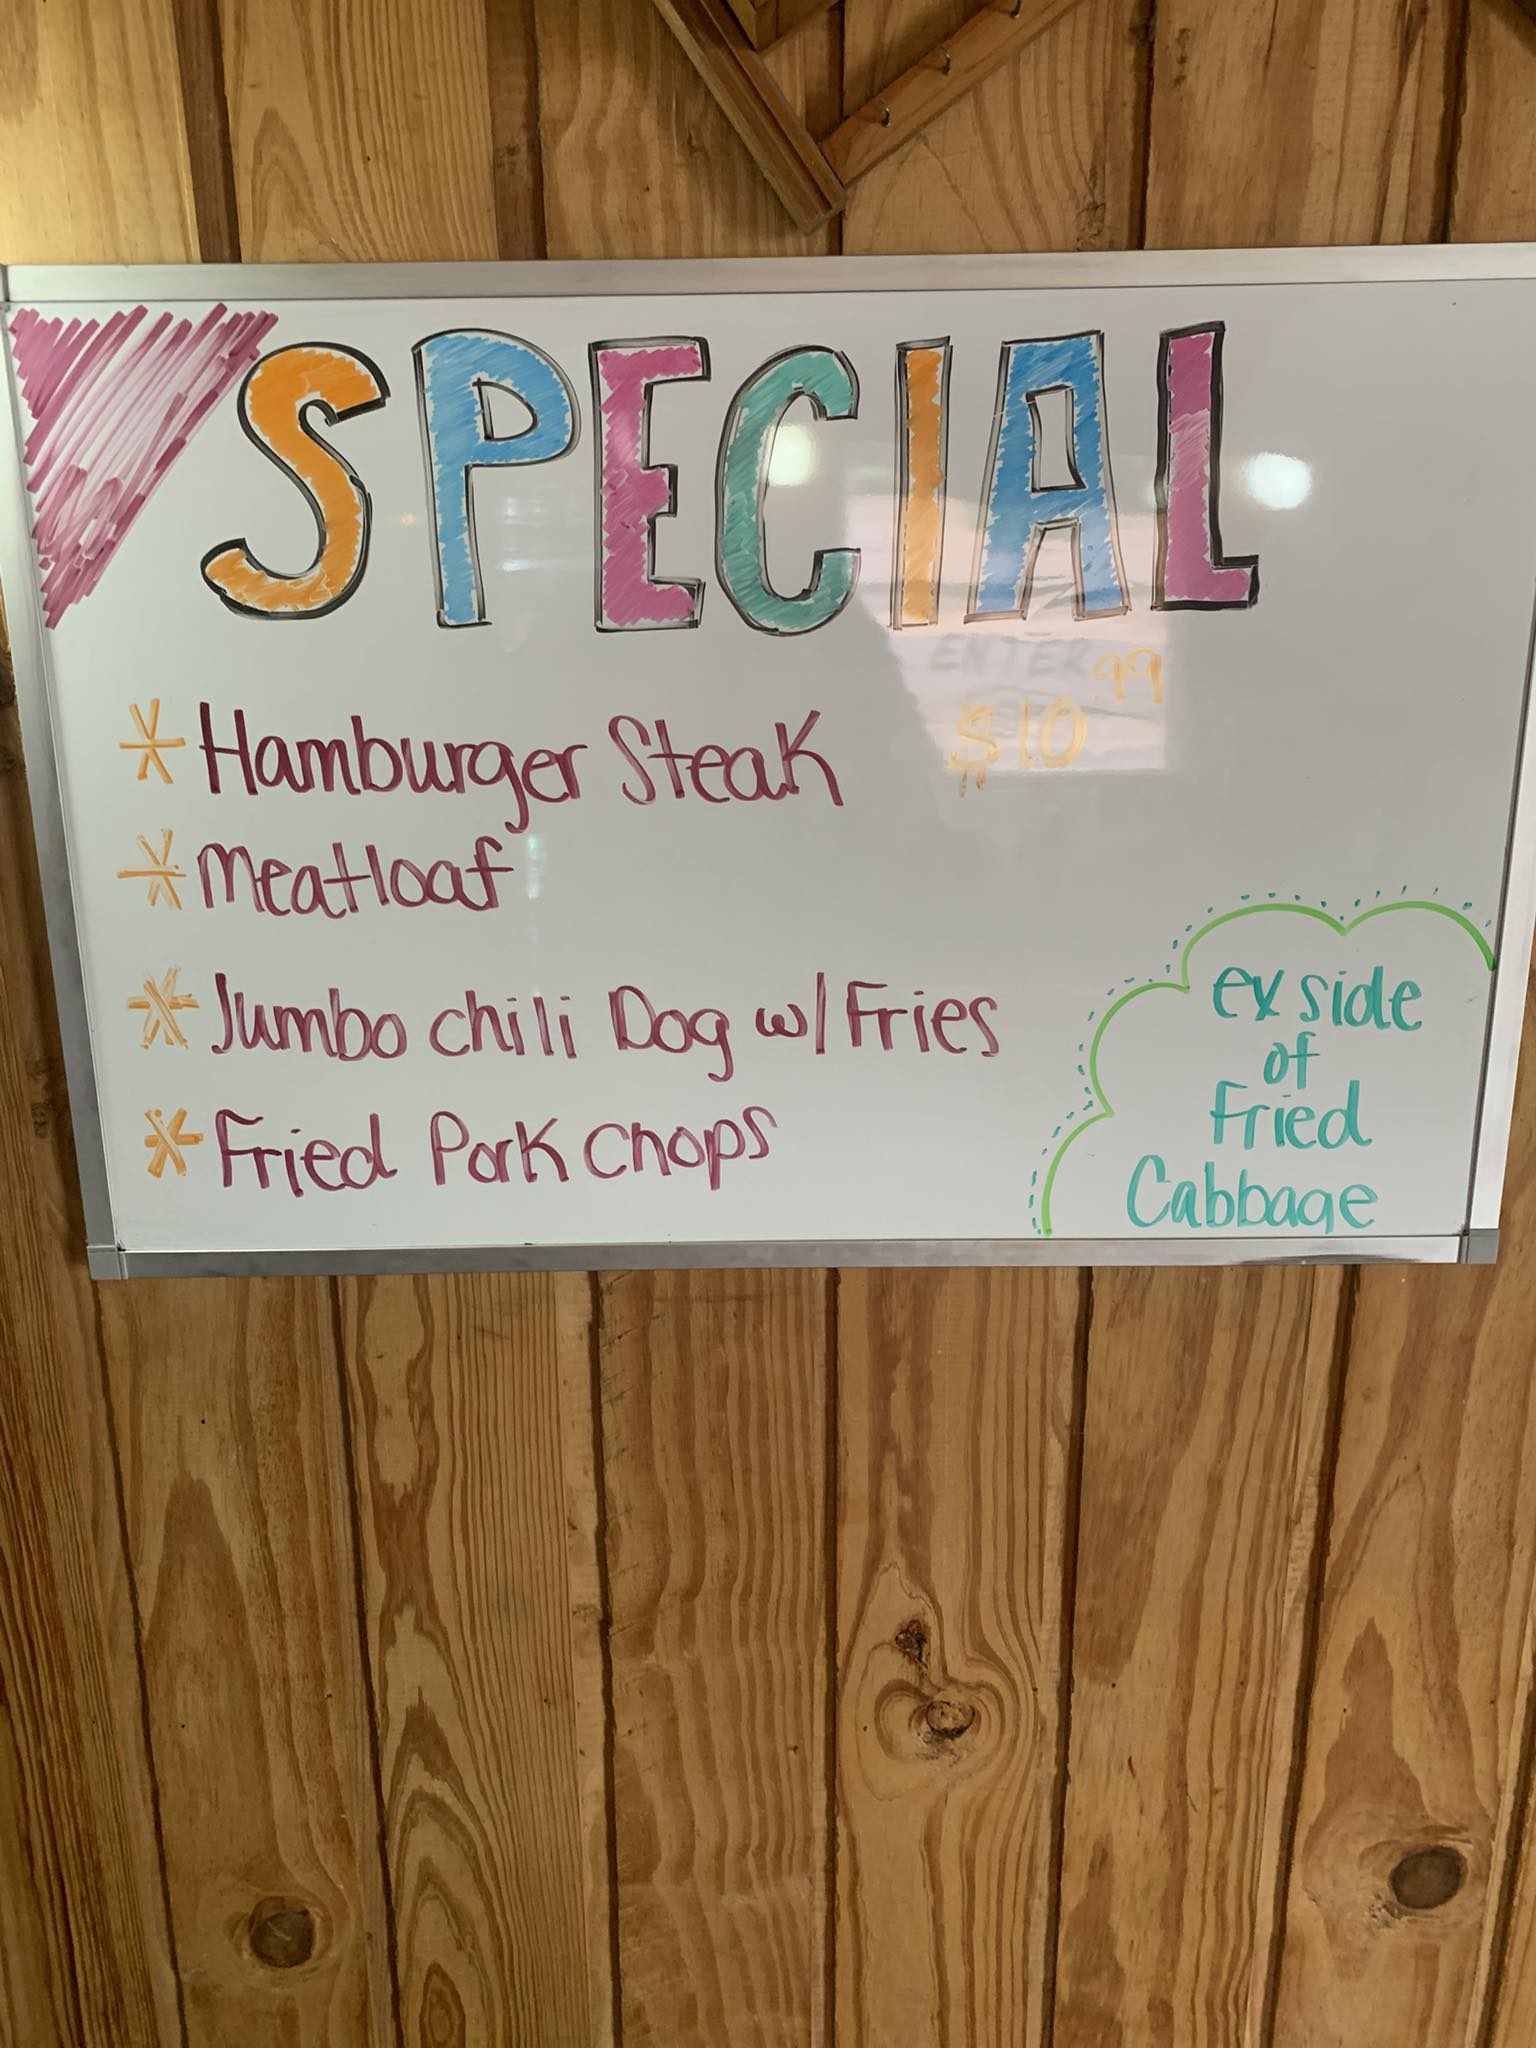 SPECIAL
ENTER
* Hamburger Steak $10.99
* Meatloaf
* Jumbo chili Dog w/ Fries
* Fried Pork Chops
ex side
of
Fried
Cabbage